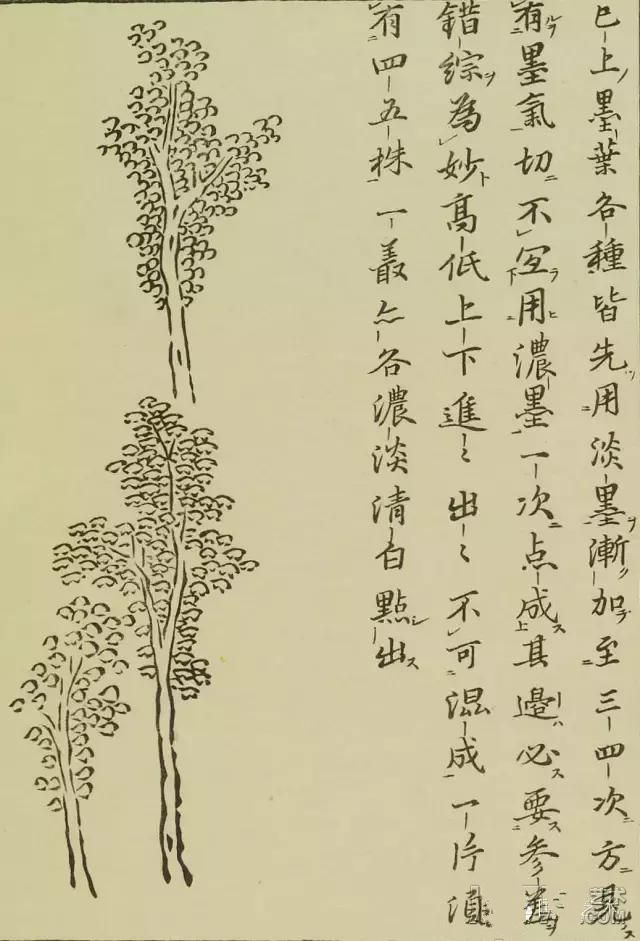 已上墨葉各種皆先用淡墨漸加至三四次方見
有墨氣切不宜用濃墨一次点成其邊必要參差
錯綜為妙高低上下進〻出〻不可混成一片須
有四五株一叢亦各濃淡清白點出
.COM